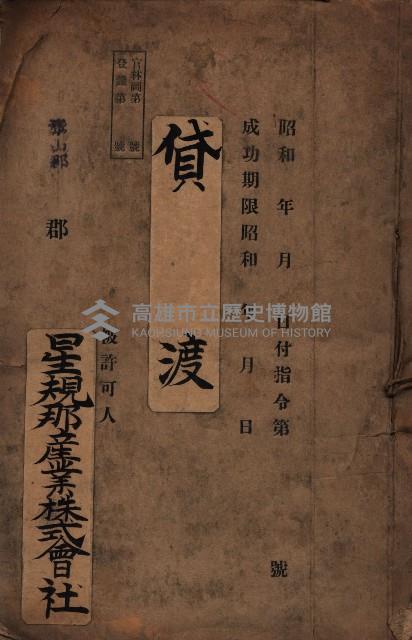 昭和　年　月　日付指令第　號
成功期限昭和　年　月　日
貸渡
官林圖第　號
登錄第　號
被許可人
郡
星規那産業株式會社
高雄市立歷史博物館
KAOHSIUNG MUSEUM OF HISTORY